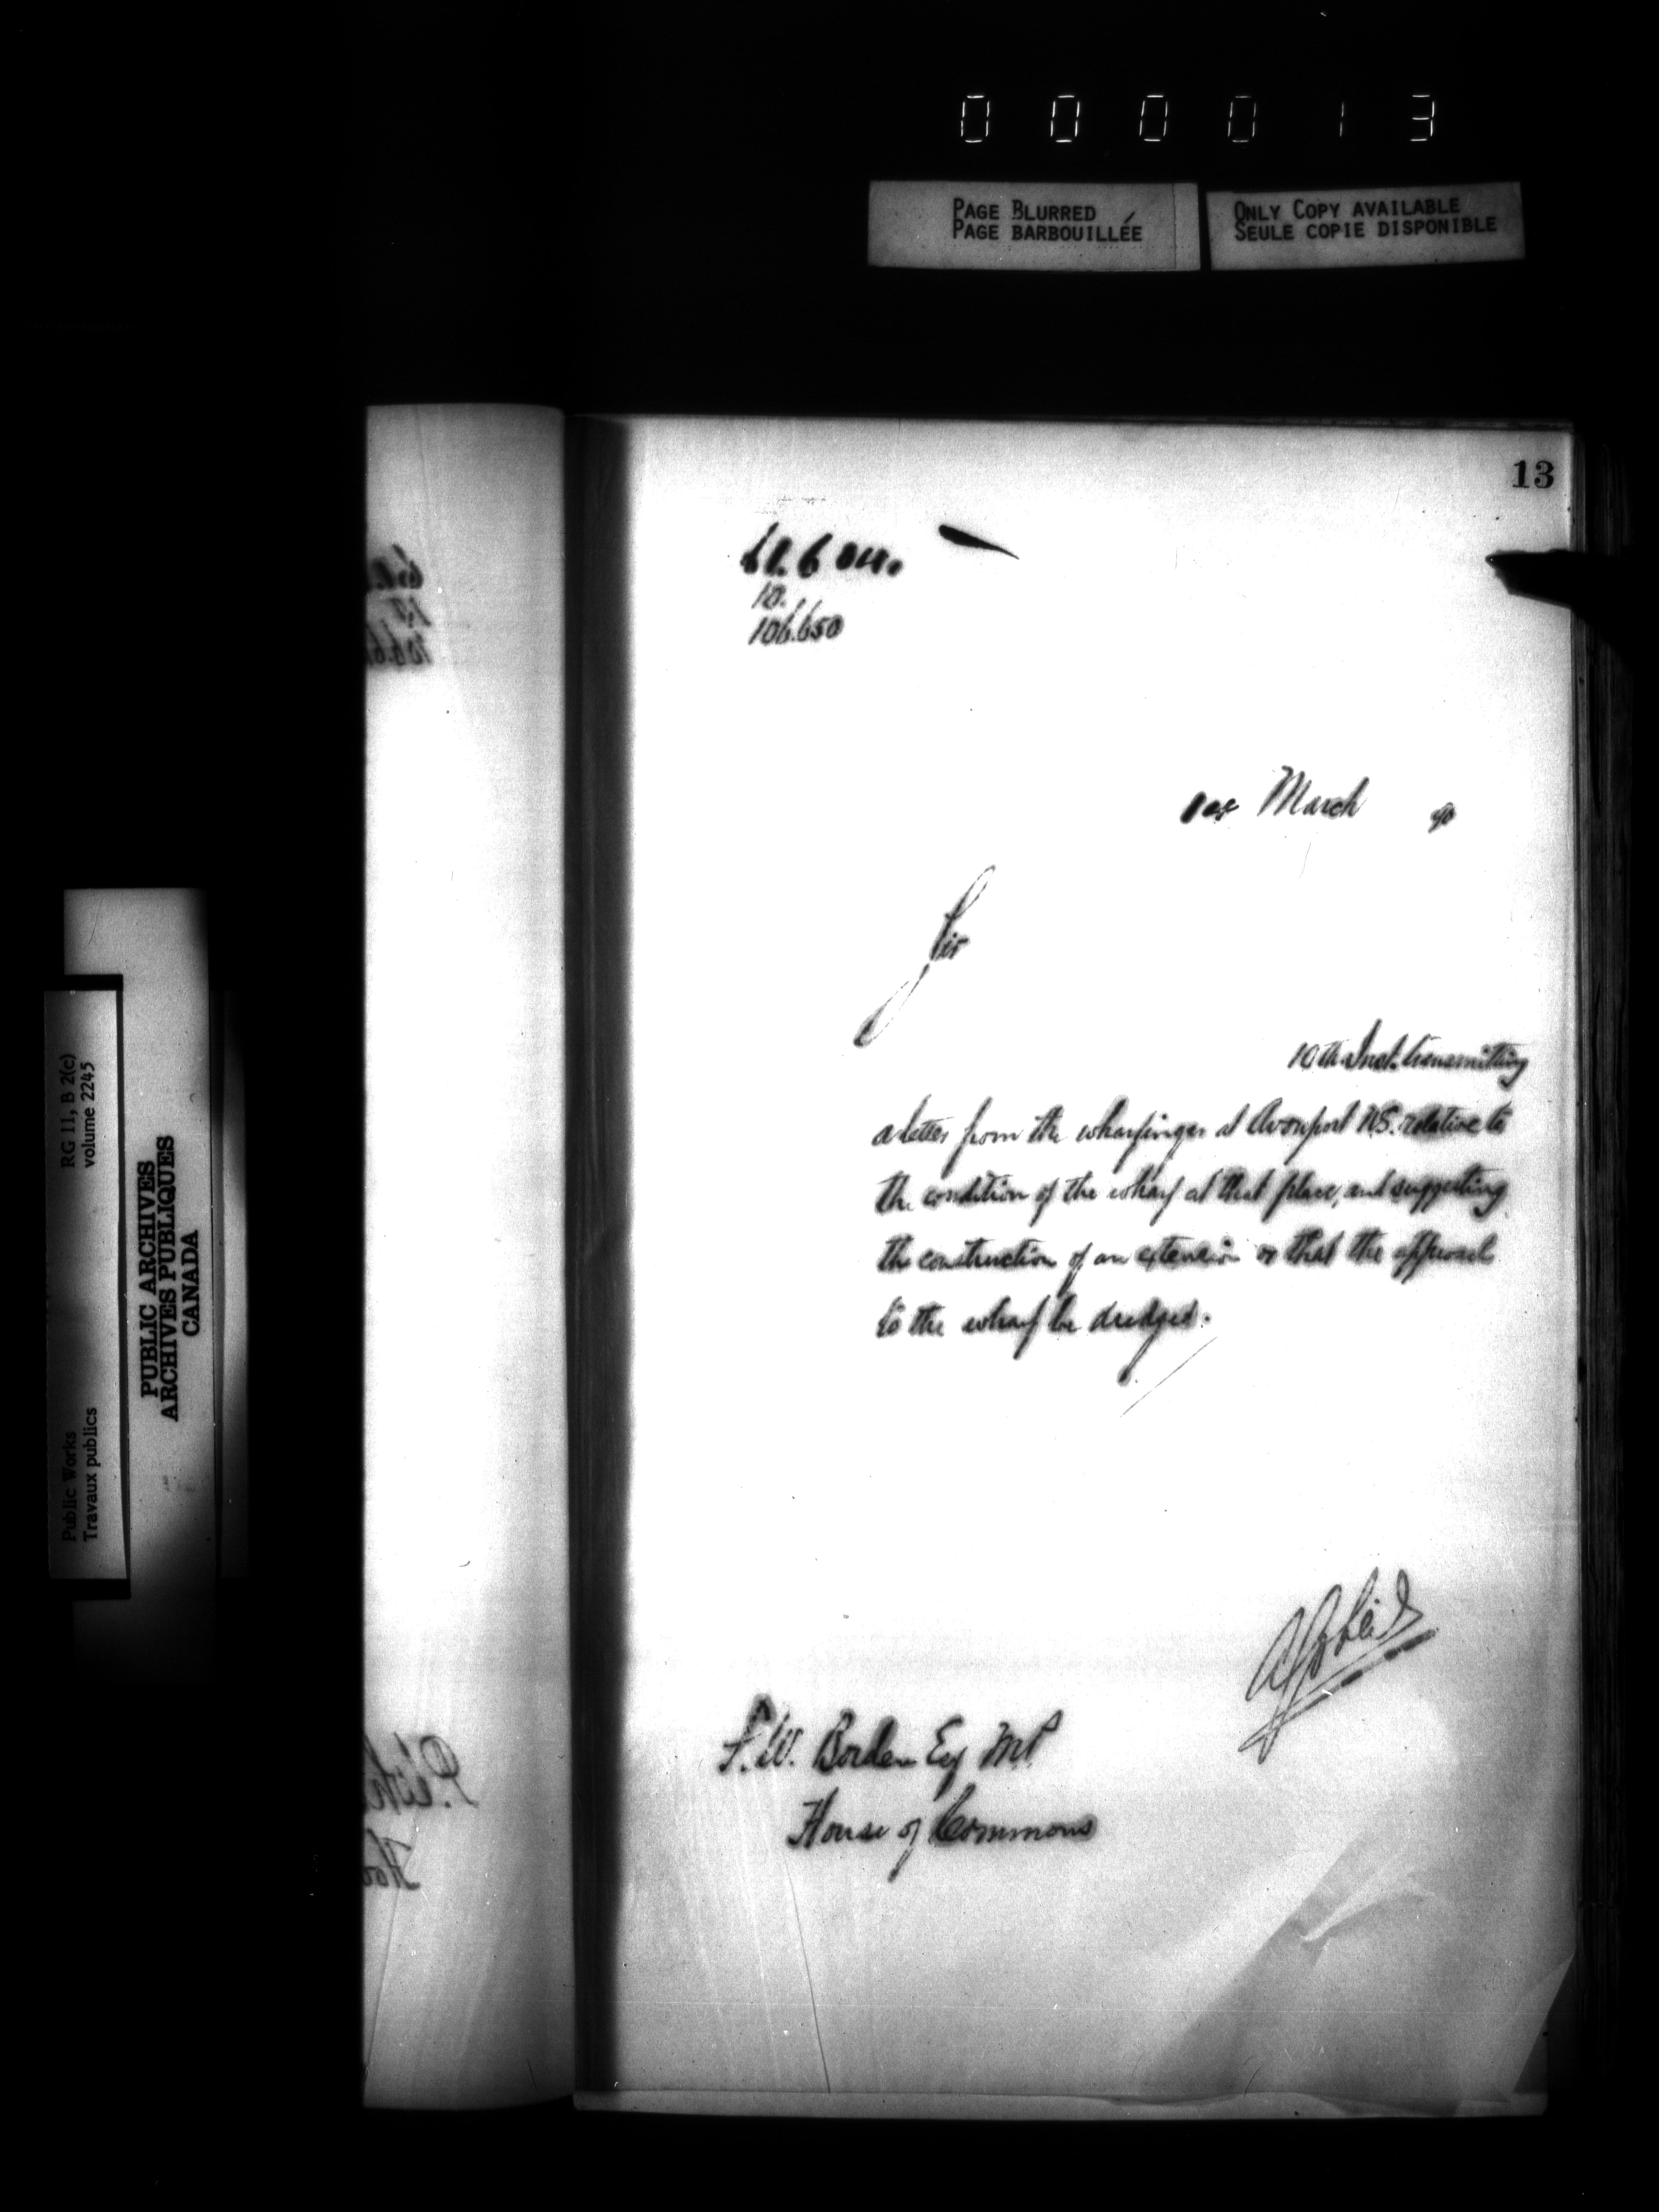 000013
PAGE BLURRED
PAGE BARBOUILLÉE
ONLY COPY AVAILABLE
SEULE COPIE DISPONIBLE
13
10.
106.650
March 90
Sir
10th Inst. transmitting
a letter from the wharfinger at Avonport N.S. relative to
the condition of the wharf at that place, and suggesting
the construction of an extension or that the approach
to the wharf be dredged.
F.W. Borden Esq M.P.
House of Commons
Public Works
Travaux publics
RG 11, B 2(c)
volume 2245
PUBLIC ARCHIVES
ARCHIVES PUBLIQUES
CANADA